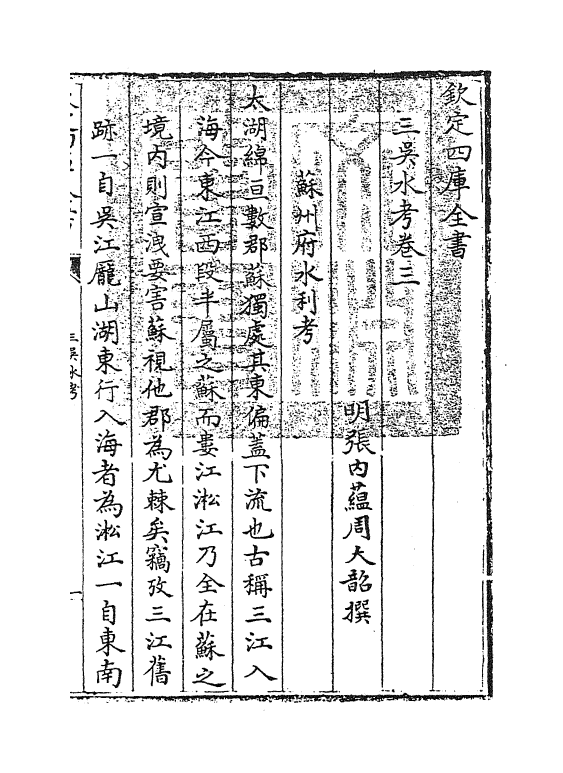 欽定四庫全書
三吳水考卷三
明張內蘊周大韶撰
蘇州府水利考
太湖綿亘數郡蘇獨處其東偏蓋下流也古稱三江入
海今東江西段半屬之蘇而婁江淞江乃全在蘇之
境內則宣洩要害蘇視他郡為尤棘矣竊攷三江舊
跡一自吳江龎山湖東行入海者為淞江一自東南
三吳水考
一